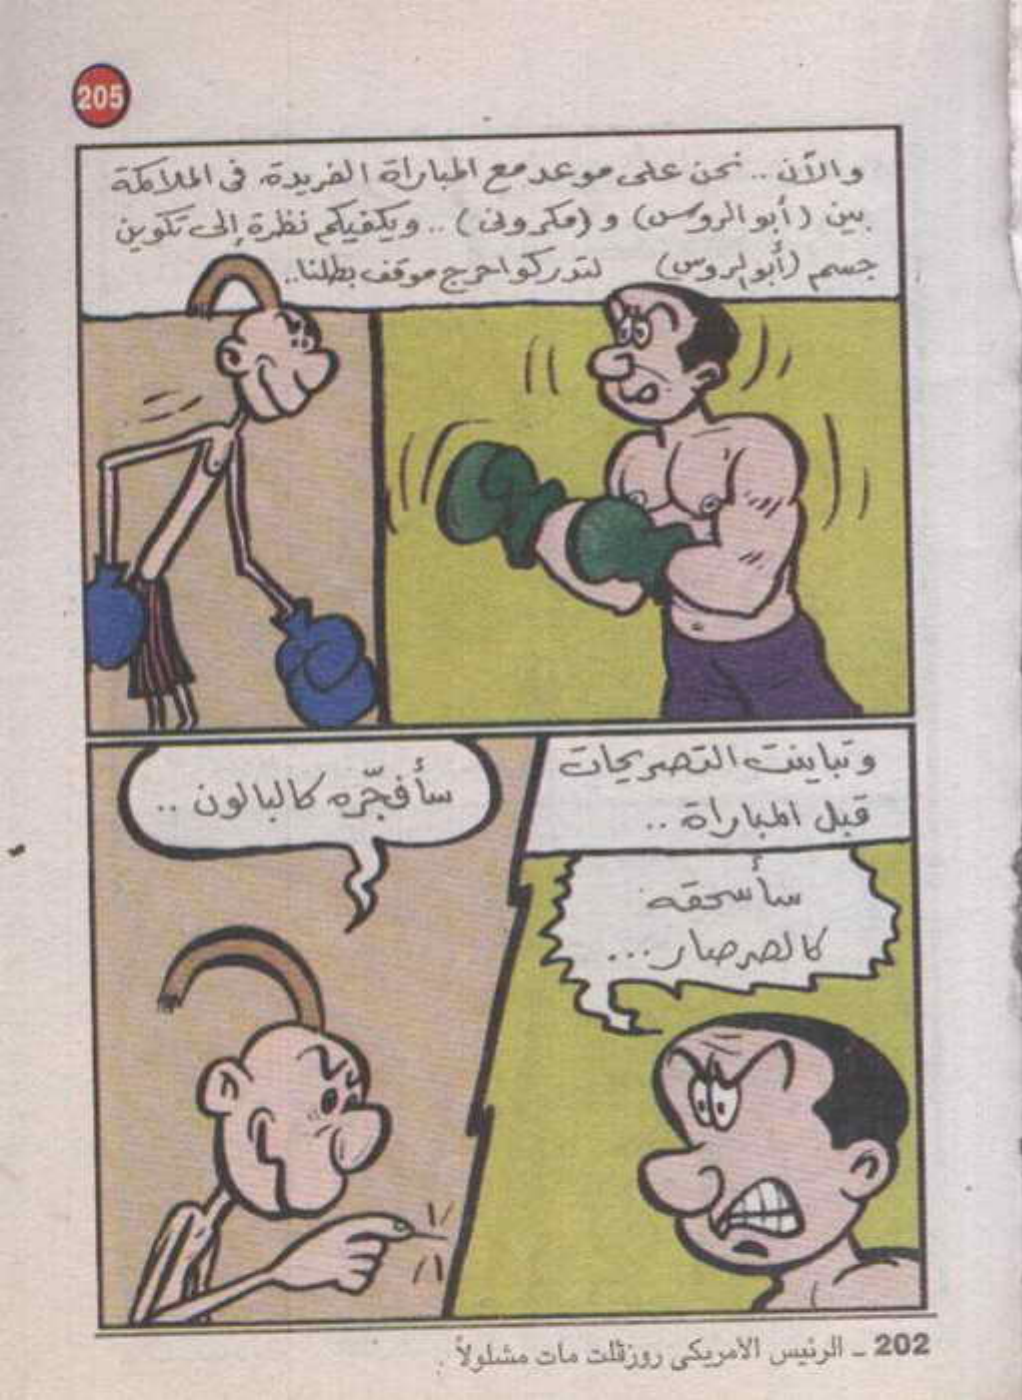 205
والآن .. نحن على موعد مع المباراة الفريدة في الملاكمة
بين (أبو الروس) و (مكرونى) .. ويكفيكم نظرة إلى تكوين
جسم (أبو الروس) لتدركوا حرج موقف بطلنا ..
وتباينت التصريحات
قبل المباراة ..
سأسحقه
كالصرصار ...
سأفجّره كالبالون ..
202 ـ الرئيس الامريكى روزفلت مات مشلولاً .